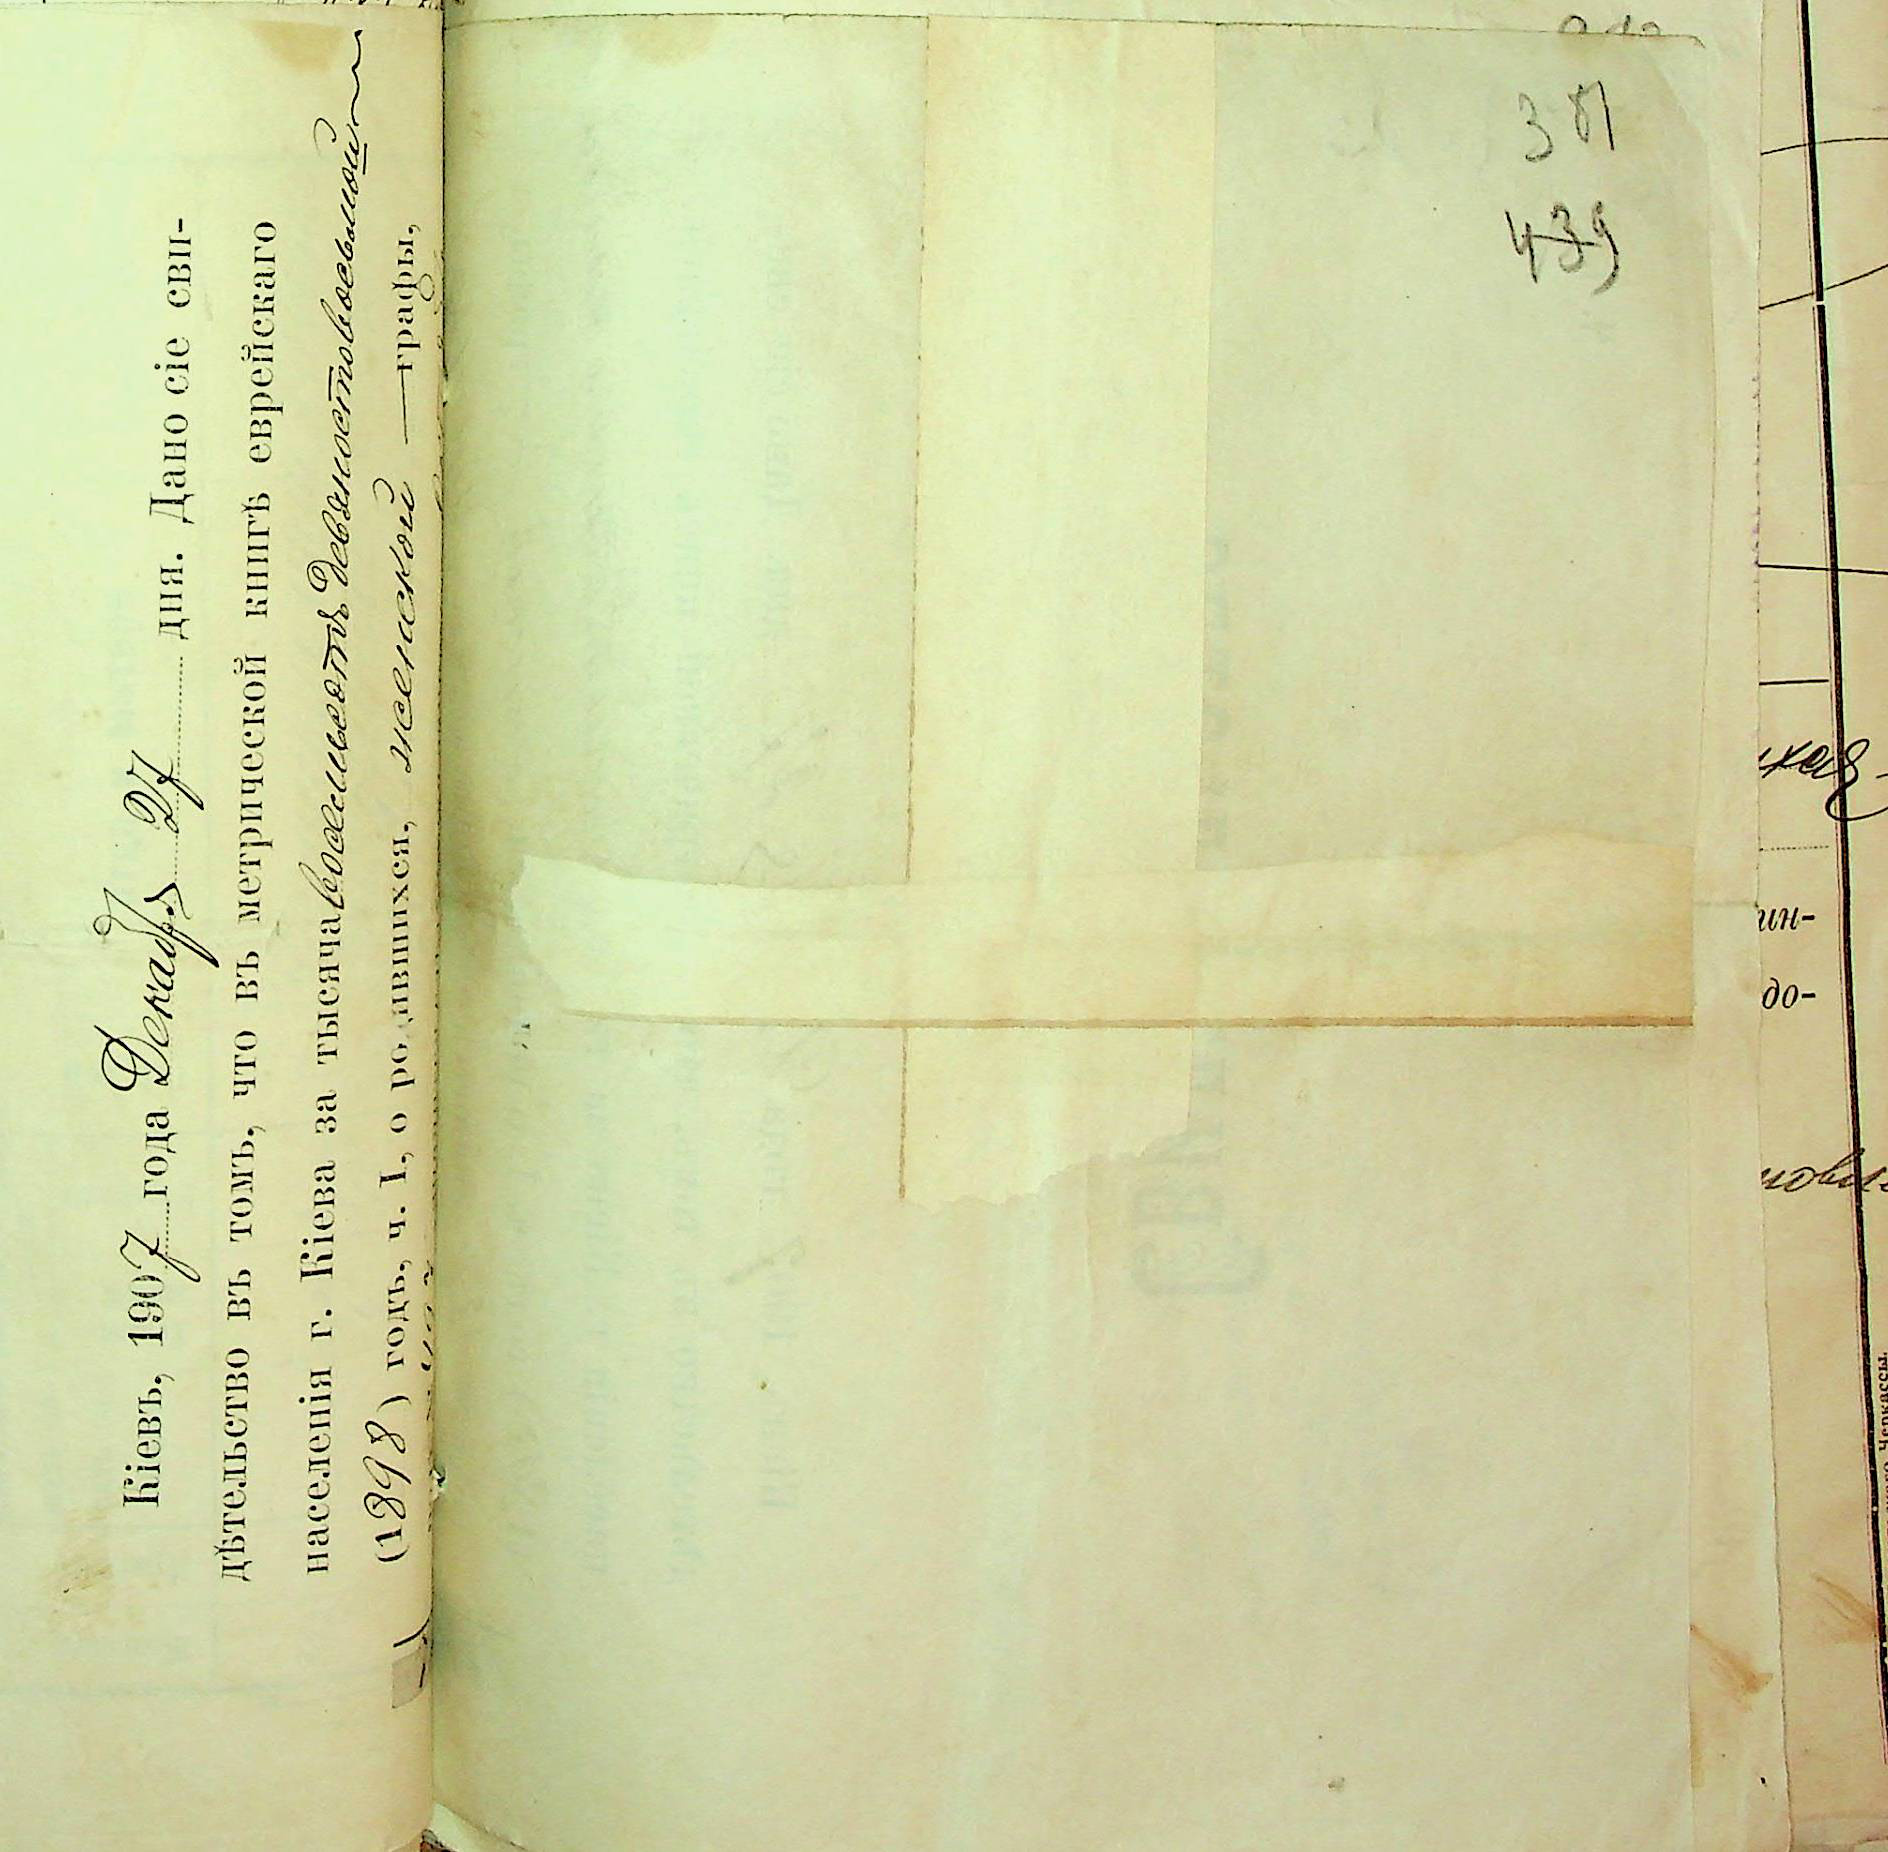 Кіевъ, 1907 года Декабр. 27 дня. Дано сіе сви-
дѣтельство въ томъ, что въ метрической книгѣ еврейскаго
населенія г. Кіева за тысяча восемьсотъ девяностовосьмой
(1898) годъ, ч. I, о родившихся, женской графы,
351
439
ин-
до-